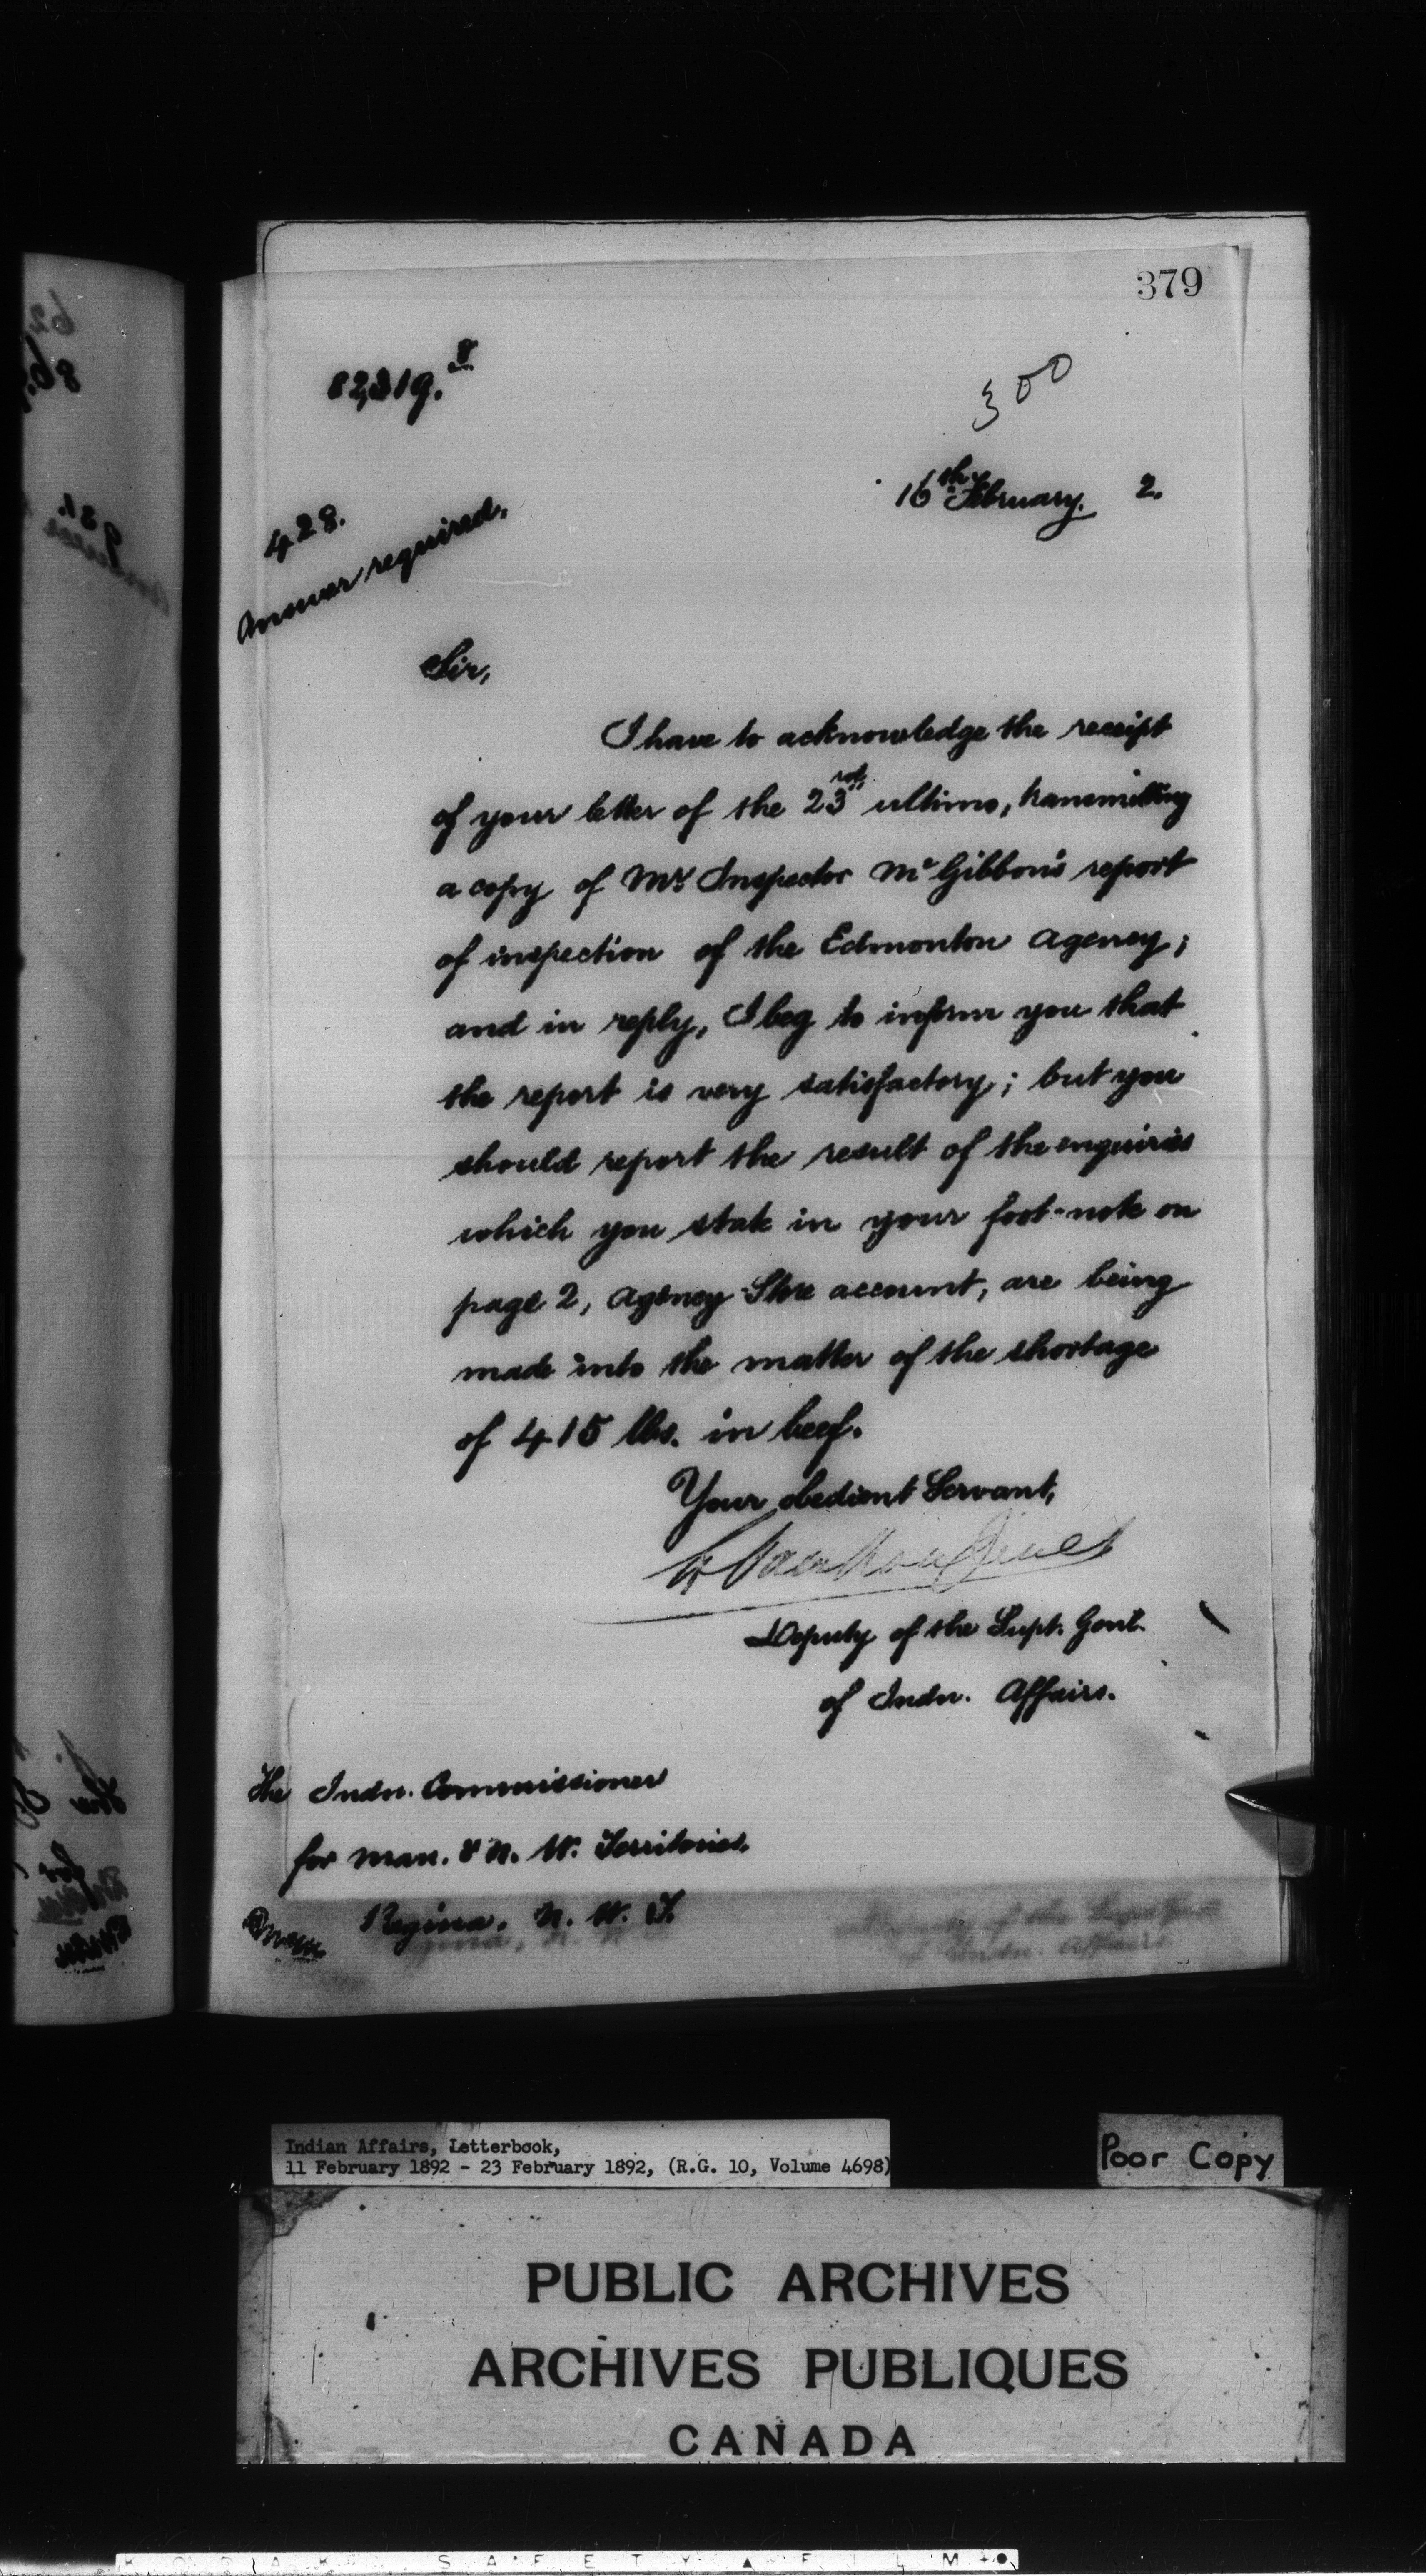 379
82,319.8
300
16th February. 2.
428.
Answer required.
Sir,
I have to acknowledge the receipt
of your letter of the 23rd ultimo, transmitting
a copy of Mr. Inspector McGibbon's report
of inspection of the Edmonton Agency;
and in reply, I beg to inform you that
the report is very satisfactory; but you
should report the result of the enquiries
which you state in your foot-note on
page 2, Agency Store account, are being
made into the matter of the shortage
of 415 lbs. in beef.
Your obedient Servant,
L. Vankoughnet
Deputy of the Supt. Genl.
of Indn. Affairs.
The Indn. Commissioner
for Man. & N. W. Territories.
Regina, N. W. T.
Indian Affairs, Letterbook,
11 February 1892 - 23 February 1892, (R.G. 10, Volume 4698)
Poor Copy
PUBLIC ARCHIVES
ARCHIVES PUBLIQUES
CANADA
KODAK SAFETY ▲ FILM